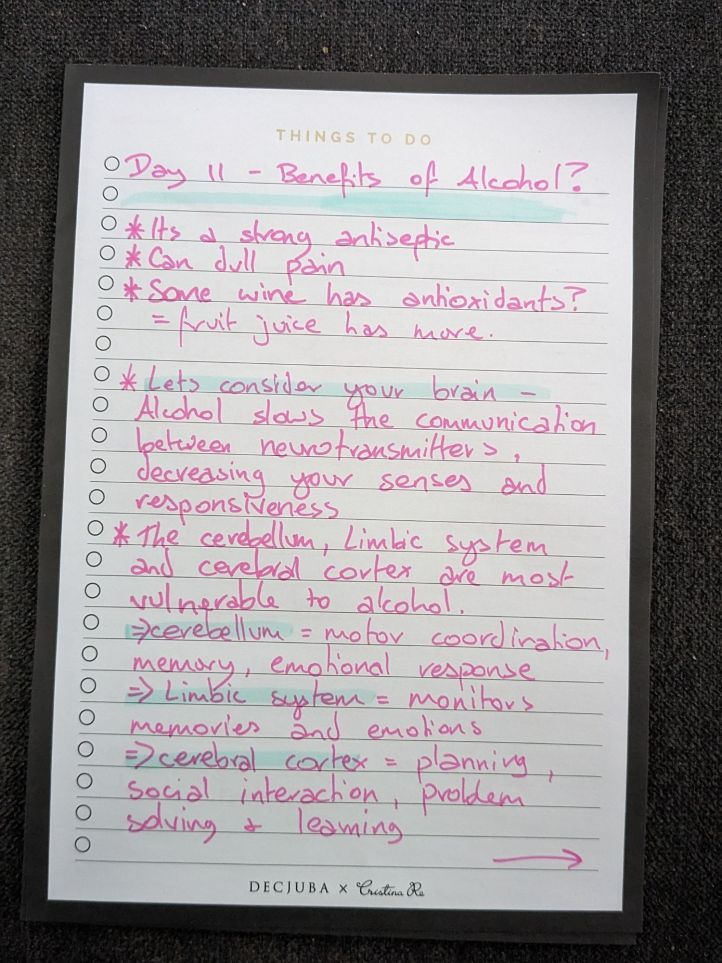 THINGS TO DO
Day 11 - Benefits of Alcohol?
* Its a strong antiseptic
* Can dull pain
* Some wine has antioxidants?
= fruit juice has more.
* Lets consider your brain -
Alcohol slows the communication
between neurotransmitters,
decreasing your senses and
responsiveness
* The cerebellum, Limbic system
and cerebral cortex are most
vulnerable to alcohol.
⇒ cerebellum = motor coordination,
memory, emotional response
⇒ Limbic system = monitors
memories and emotions
⇒ cerebral cortex = planning,
social interaction, problem
solving & learning
→
DECJUBA × Cristina Re